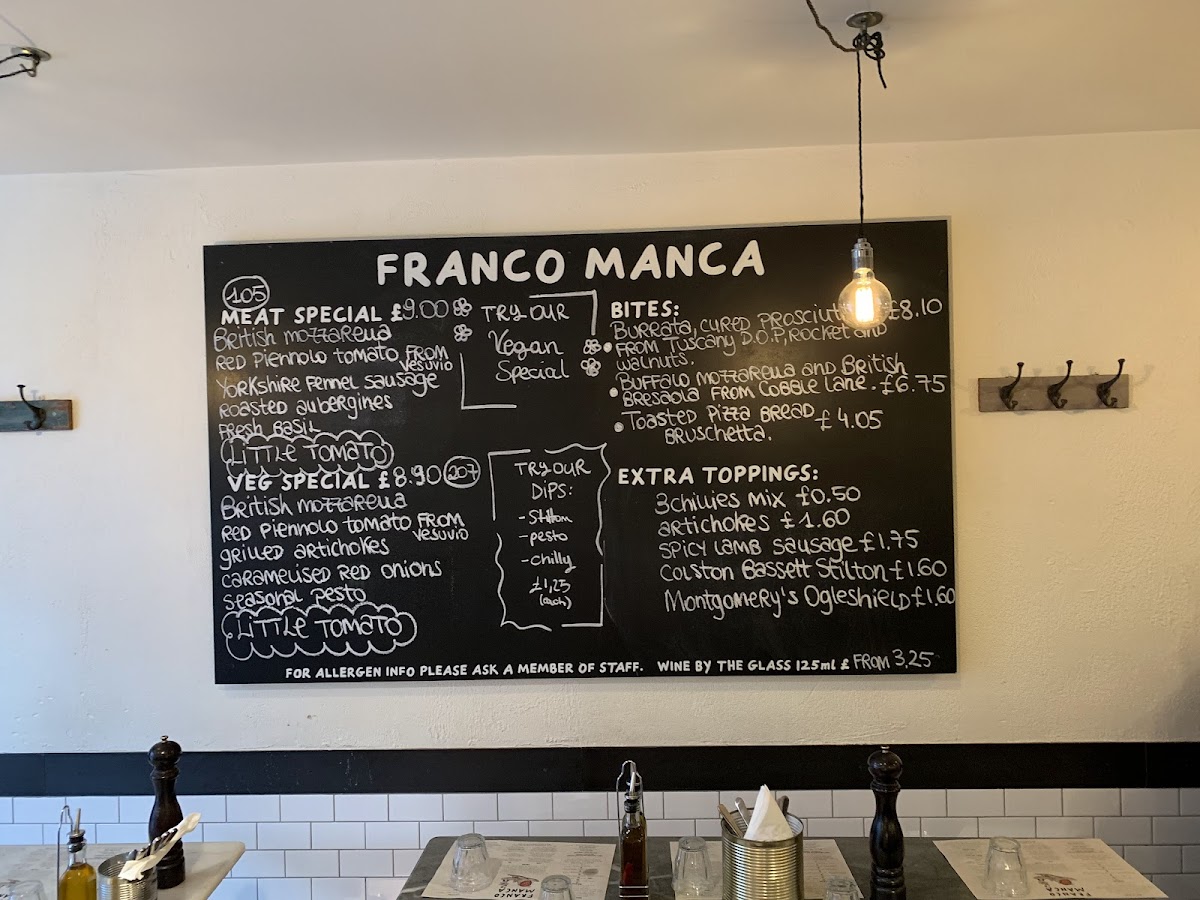 FRANCO MANCA
105
MEAT SPECIAL £9.00
British mozzarella
RED PIENNOLO TOMATO FROM
VESUVIO
YORKSHIRE FENNEL SAUSAGE
ROASTED AUBERGINES
FRESH BASIL
LITTLE TOMATO
VEG SPECIAL £8.90 207
British mozzarella
RED PIENNOLO TOMATO FROM
VESUVIO
GRILLED ARTICHOKES
CARAMELISED RED ONIONS
SEASONAL PESTO
LITTLE TOMATO
TRY OUR
Vegan
Special
TRY OUR
DIPS:
- Stilton
- pesto
- chilly
£1,25
(each)
BITES:
BURRATA, CURED £8.10
FROM TUSCANY D.O.P, ROCKET AND
WALNUTS.
BUFFALO MOZZARELLA AND BRITISH
BRESAOLA FROM COBBLE LANE. £6.75
TOASTED PIZZA BREAD £4.05
BRUSCHETTA.
EXTRA TOPPINGS:
3 CHILIES MIX £0.50
ARTICHOKES £1.60
SPICY LAMB SAUSAGE £1.75
COLSTON BASSETT STILTON £1.60
MONTGOMERY'S OGLESHIELD £1.60
FOR ALLERGEN INFO PLEASE ASK A MEMBER OF STAFF. WINE BY THE GLASS 125ml £ FROM 3,25
FRANCO
MANCA
FRANCO
MANCA